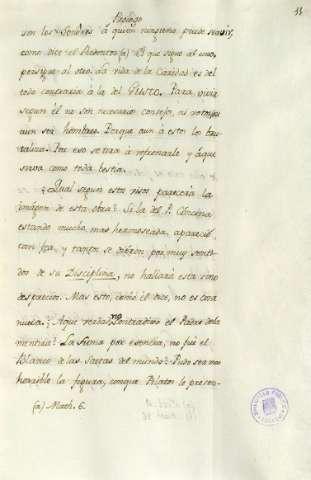 Prólogo
11
son los Señores á quien ninguno puede servir,
como dice el Redentor (a). El que sigue al uno,
persigue al otro. La vida de la Caridad es del
todo contraria à la del GUSTO. Para vivir
segun él no son necesarios consejos, ni
aun ser hombre. Porque aun à esto lo
Por eso se tira à refrenarle y á que
sirva como toda bestia.
¿Qual segun esta risa parecerá la
imágen de esta obra? Si la del P. Concina
estando mucho mas hermoseada, apareció
tan fea, y tantos se dieron por muy sentidos
de su Disciplina, no hallará esta sino
desprecios. Mas esto, como él dice, no es cosa
nueva. ¿A qué verdad no contradixo el Padre de la
mentira? La misma por esencia, no fué el
Blanco de las saetas del mundo? Pudo ser mas
horrible la figura, conque Pilato le presen-
(a) Math. 6.